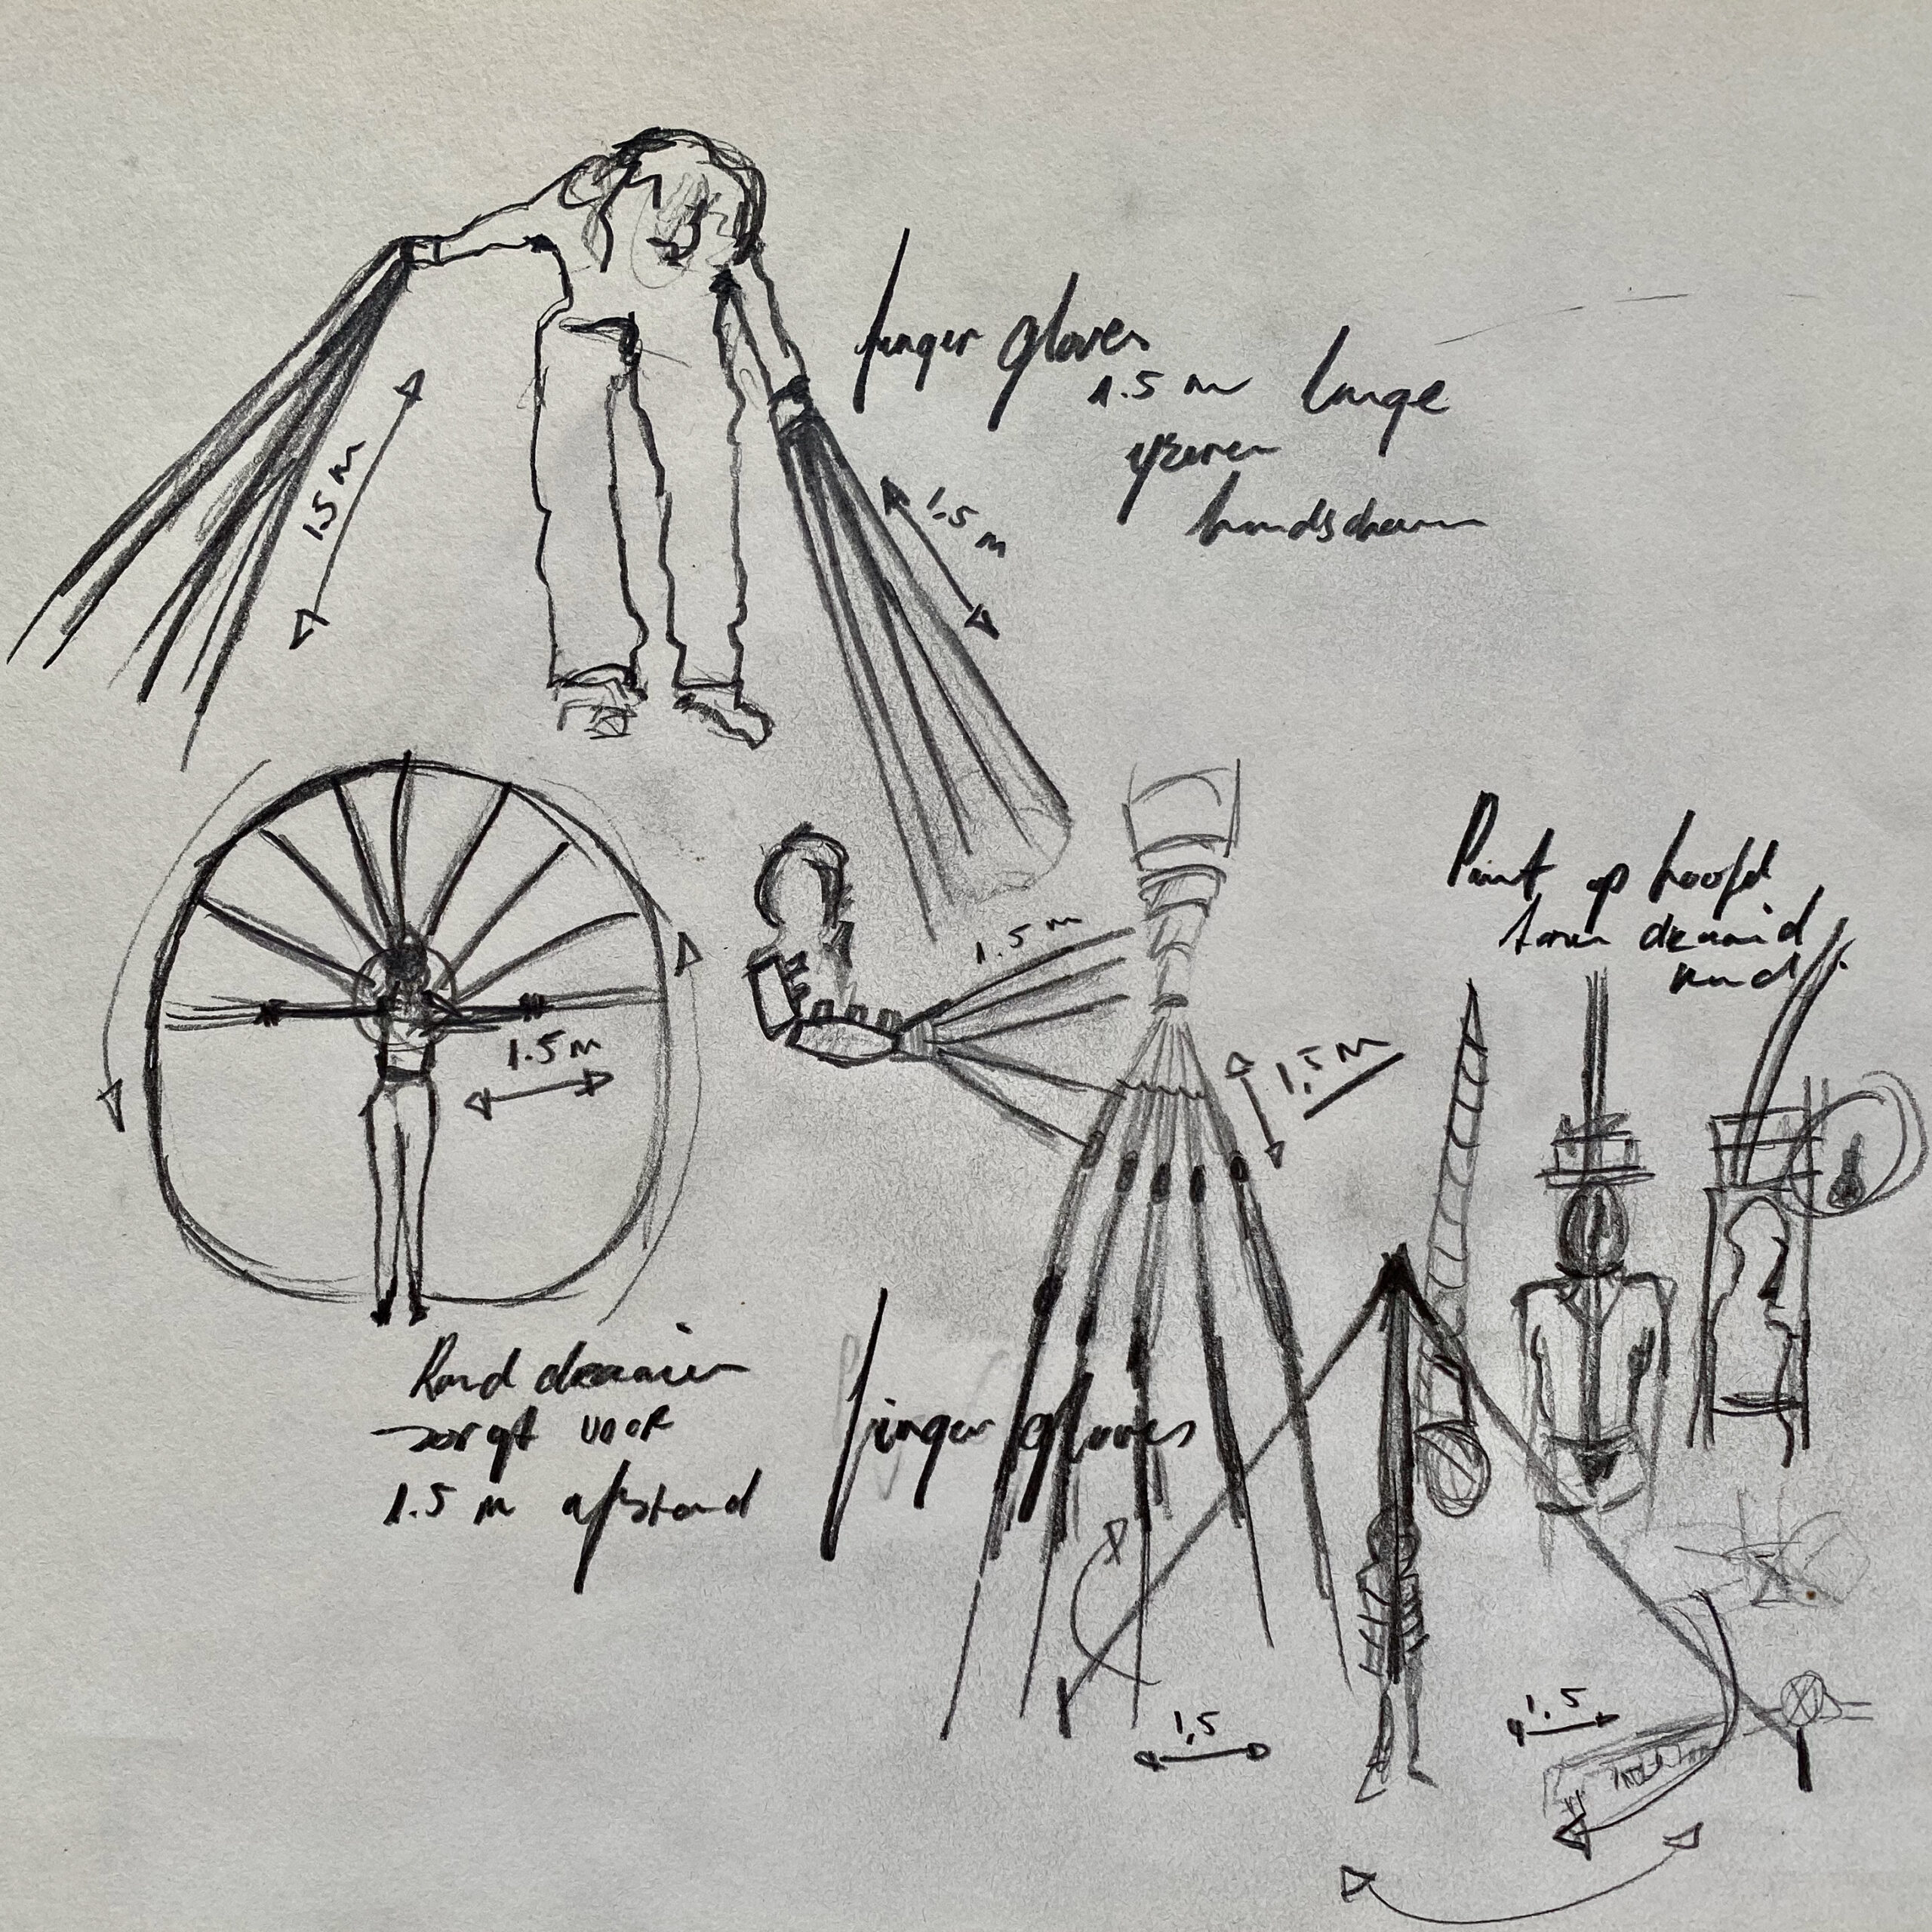 finger gloves
1.5 m lange
yzeren
handschoen
1.5 m
1.5 m
1.5 m
1.5 m
1,5 m
Punt op hoofd
draaid
rond
Rond draaien
zorgt voor
1.5 m afstand
finger gloves
1,5
1,5